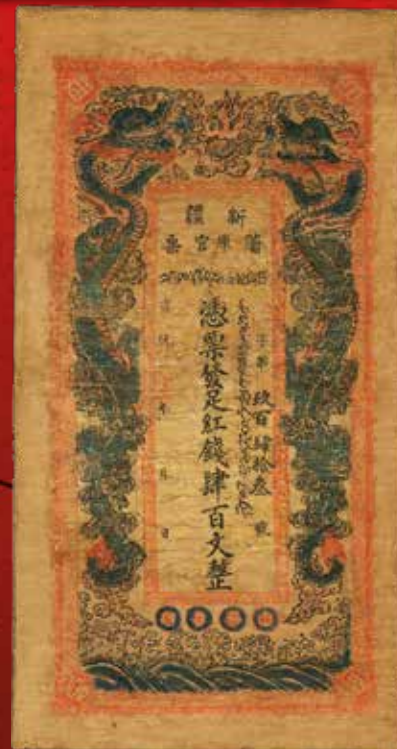 新疆
藩庫官票
字第玖百肆拾叁號
憑票發足紅錢肆百文整
光緒 年 月 日